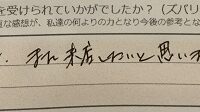 を受けられていかがでしたか？（ズバリ
な感想が、私達の何よりの力となり今後の参考とな
また来店したいと思いま